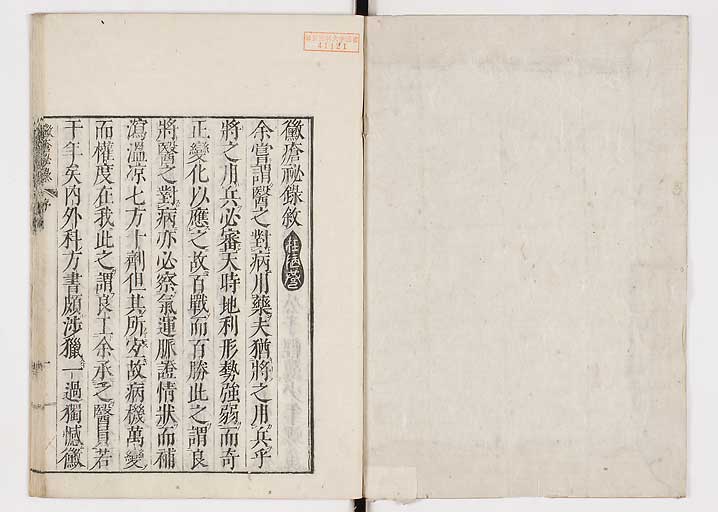 黴瘡祕錄敘
余嘗謂醫之對病用藥夫猶將之用兵乎
將之用兵必審天時地利形勢強弱而奇
正變化以應之故百戰而百勝此之謂良
將醫之對病亦必察氣運脈證情狀而補
瀉溫凉七方十劑但其所宜故病機萬變
而權度在我此之謂良工余承乏醫員若
干年矣內外科方書頗涉獵一過獨憾黴
黴瘡祕錄 序
41121